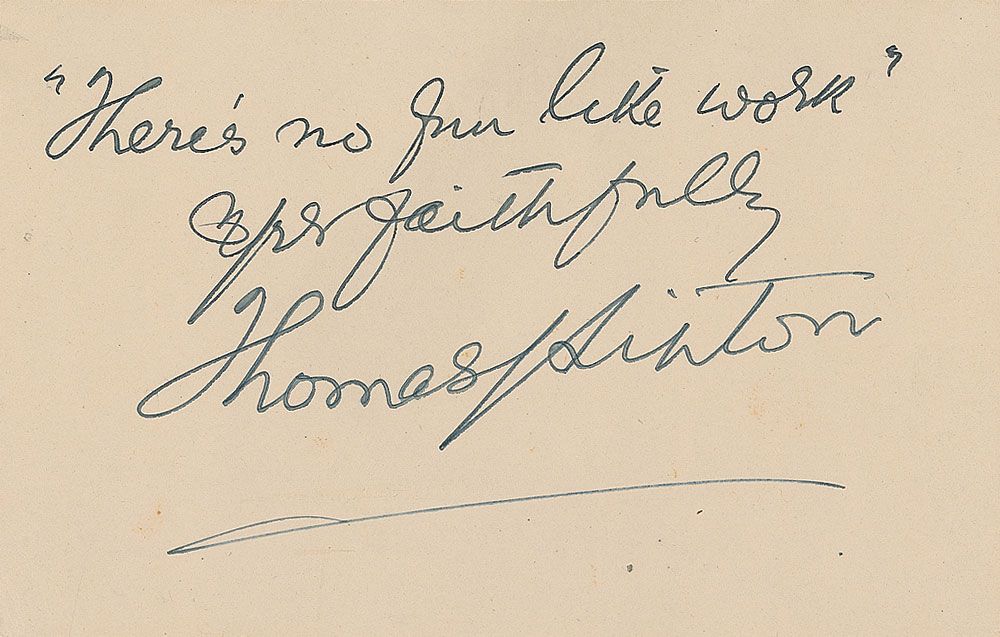 "There's no fun like work"
Yrs faithfully
Thomas J Lipton